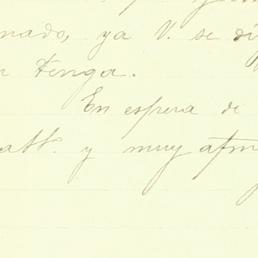 nado, ya V. se di
tenga.
En espera de
att. y muy afm